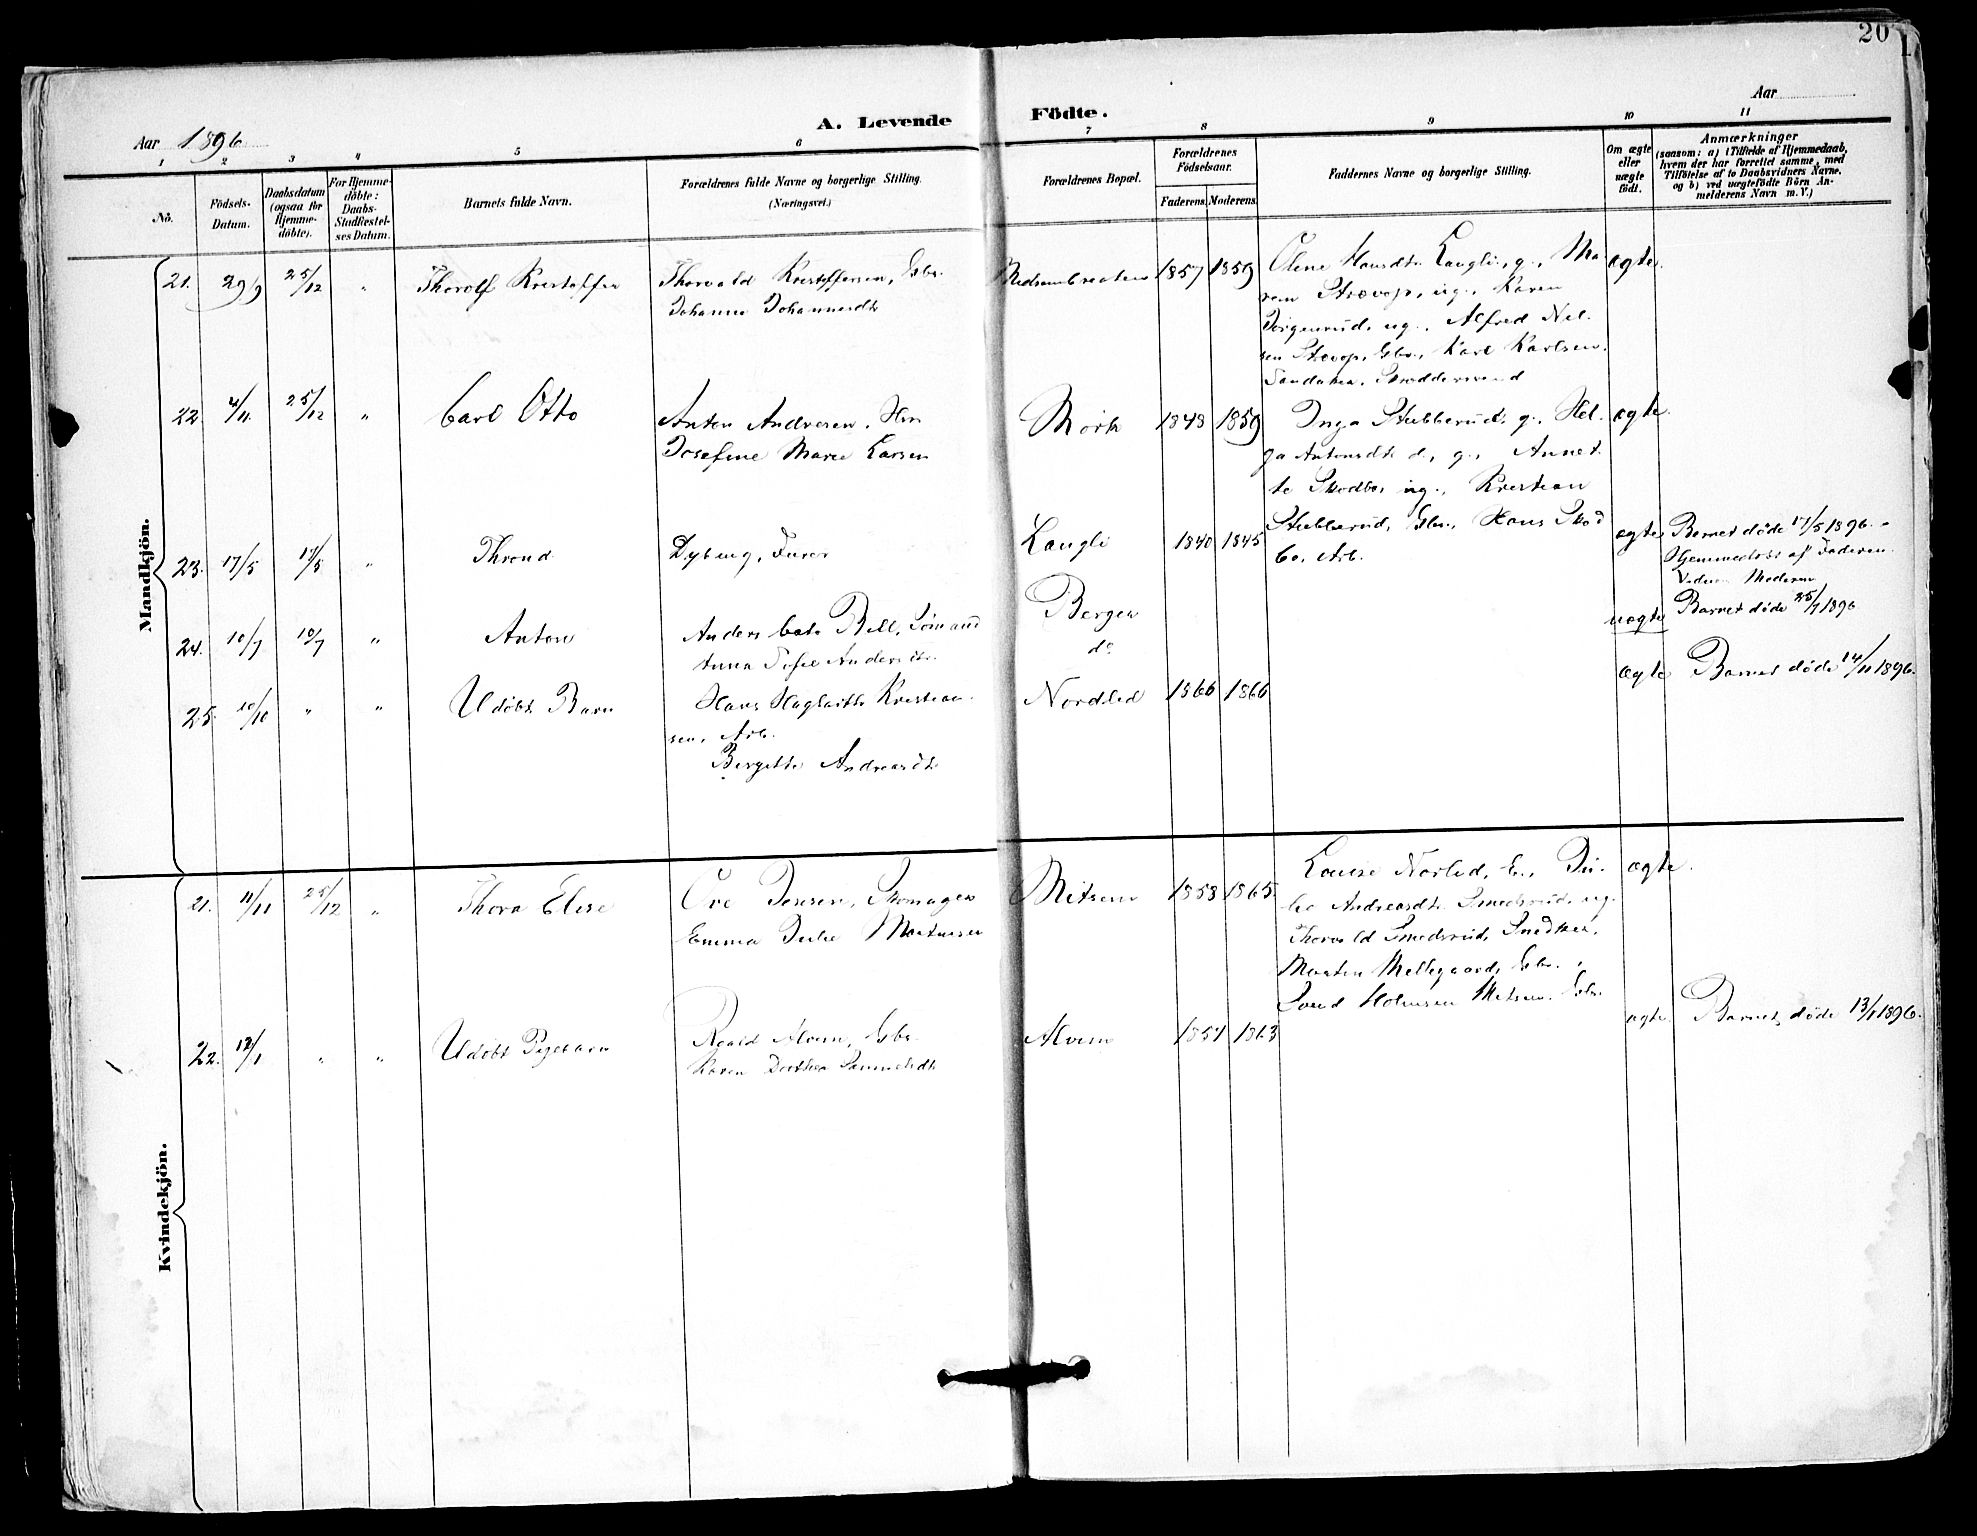 20
Aar 1896
A. Levende Födte.
Aar
1 2 3 4 5 6 7 8 9 10 11
No.
Födsels-
Datum.
Daabsdatum
(ogsaa for
Hjemme-
döbte).
For Hjemme-
döbte:
Daabs-
Stadfæstel-
ses Datum.
Barnets fulde Navn.
Forældrenes fulde Navne og borgerlige Stilling.
(Næringsvei.)
Forældrenes Bopæl.
Forældrenes
Födselsaar.
Faderens. Moderens.
Faddernes Navne og borgerlige Stilling.
Om ægte
eller
uægte
födt.
Anmærkninger
(saasom: a) i Tilfælde af Hjemmedaab,
hvem der har forrettet samme, med
Tilföielse af to Daabsvidners Navne,
og b) ved uægtefödte Börn An-
melderens Navn m. V.)
Mandkjön.
21. 29/9 25/12 " Thorolf Kristoffer
Thorvald Kristoffersen, Gbr.
Johanne Johannesdtr
1857 1859
Olene Hansdtr. Langli, g., Ma-
ren Strevop, ug., Karen
Jörgenrud, ug., Alfred Nil-
sen Strevop, Gbr., Karl Karlsen
Sandaker, Skreddersvend
ægte.
22. 4/11 25/12 " Carl Otto
Anton Andresen, Hm
Josefine Marie Larsen
Mörk
1848 1859
Inga Stubberud, g., Hel-
ga Antonsdtr d., g., Annet-
te Skodbo, ug., Kristian
Stubberud, Gbr., Hans Skod-
bo, Arb.
ægte.
23. 17/5 17/5 " Thrond
Dybing, Furer
Langli
1840 1845
ægte
Barnet döde 17/5 1896. -
Hjemmedöbt af Faderen.
Vidne Moderen
24. 10/7 10/7 " Anton
Anders Bell, Sömand
Anna Sofie Andersdtr.
Bergen
do
uægte
Barnet döde 25/7 1896
25. 10/10 " " Udöbt Barn
Hans Kristian-
sen, Arb.
Bergitte Andreasdtr
Nordlid
1866 1866
ægte
Barnet döde 14/11 1896.
Kvindekjön.
21. 11/11 25/12 " Thora Elise
Ove Jensen, Skomager
Emma Julie Martinsen
Mitsem
1858 1865
Louise Norlid, E., Ju-
lie Andreasdtr. Smedsrud, ug.
Thorvald Smedsrud, Snedker,
Morten Mellegaard, Gbr.,
Lovid Holmsen Mitsem, Gbr.
ægte.
22. 12/1 " " Udöbt Pigebarn
Alvim, Gbr.
Karen Dorthea Samuelsdtr
Alvim
1857 1863
ægte.
Barnet döde 13/1 1896.